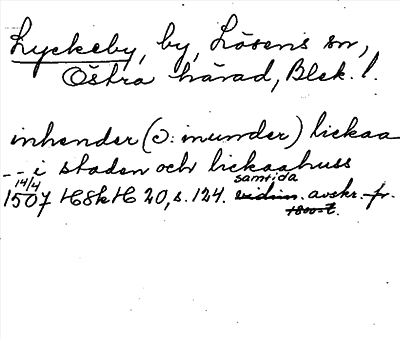 Lyckeby, by, Lösens sn,
Östra härad, Blek. l.
inhender (ɔ: inunder) lickaa
-- i staden och lickaahuss
14/4 samtida
1507 HSkH 20, s. 124. vidim. avskr. fr.
1800-t.